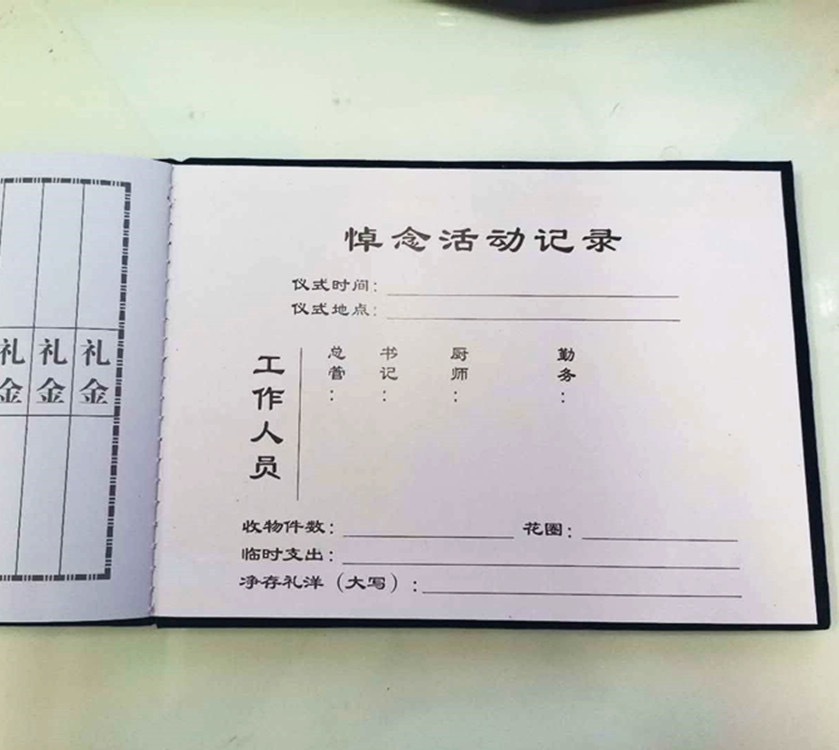 礼金 礼金 礼金
悼念活动记录
仪式时间：
仪式地点：
工作人员
总管：
书记：
厨师：
勤务：
收物件数： 花圈：
临时支出：
净存礼洋（大写）：